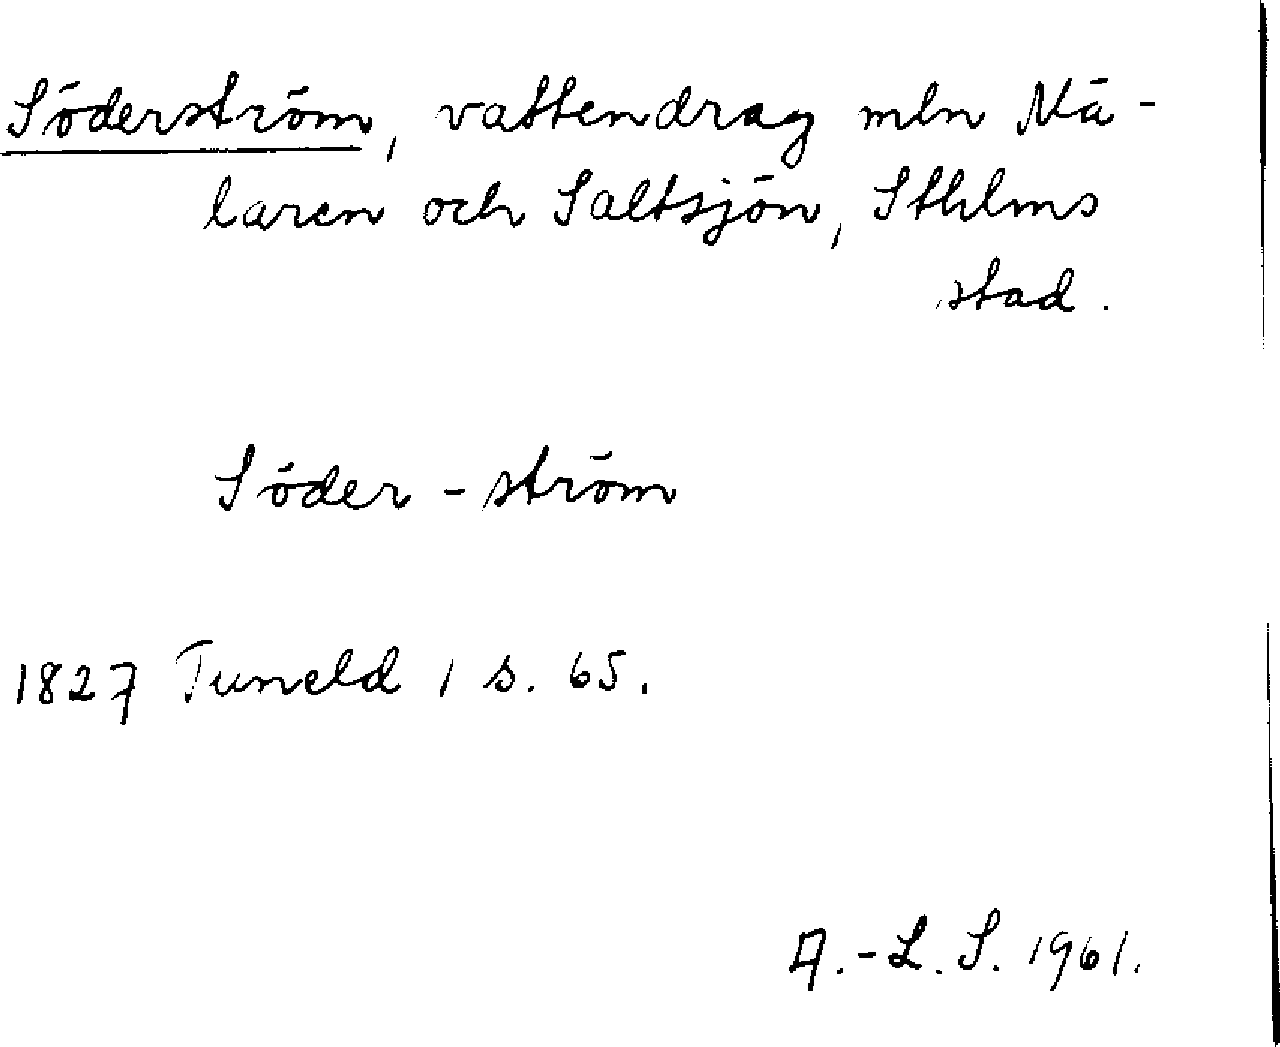 Söderström, vattendrag mln Mä-
laren och Saltsjön, Sthlms
stad.
Söder-ström
1827 Tuneld 1 s. 65.
A.-L. S. 1961.